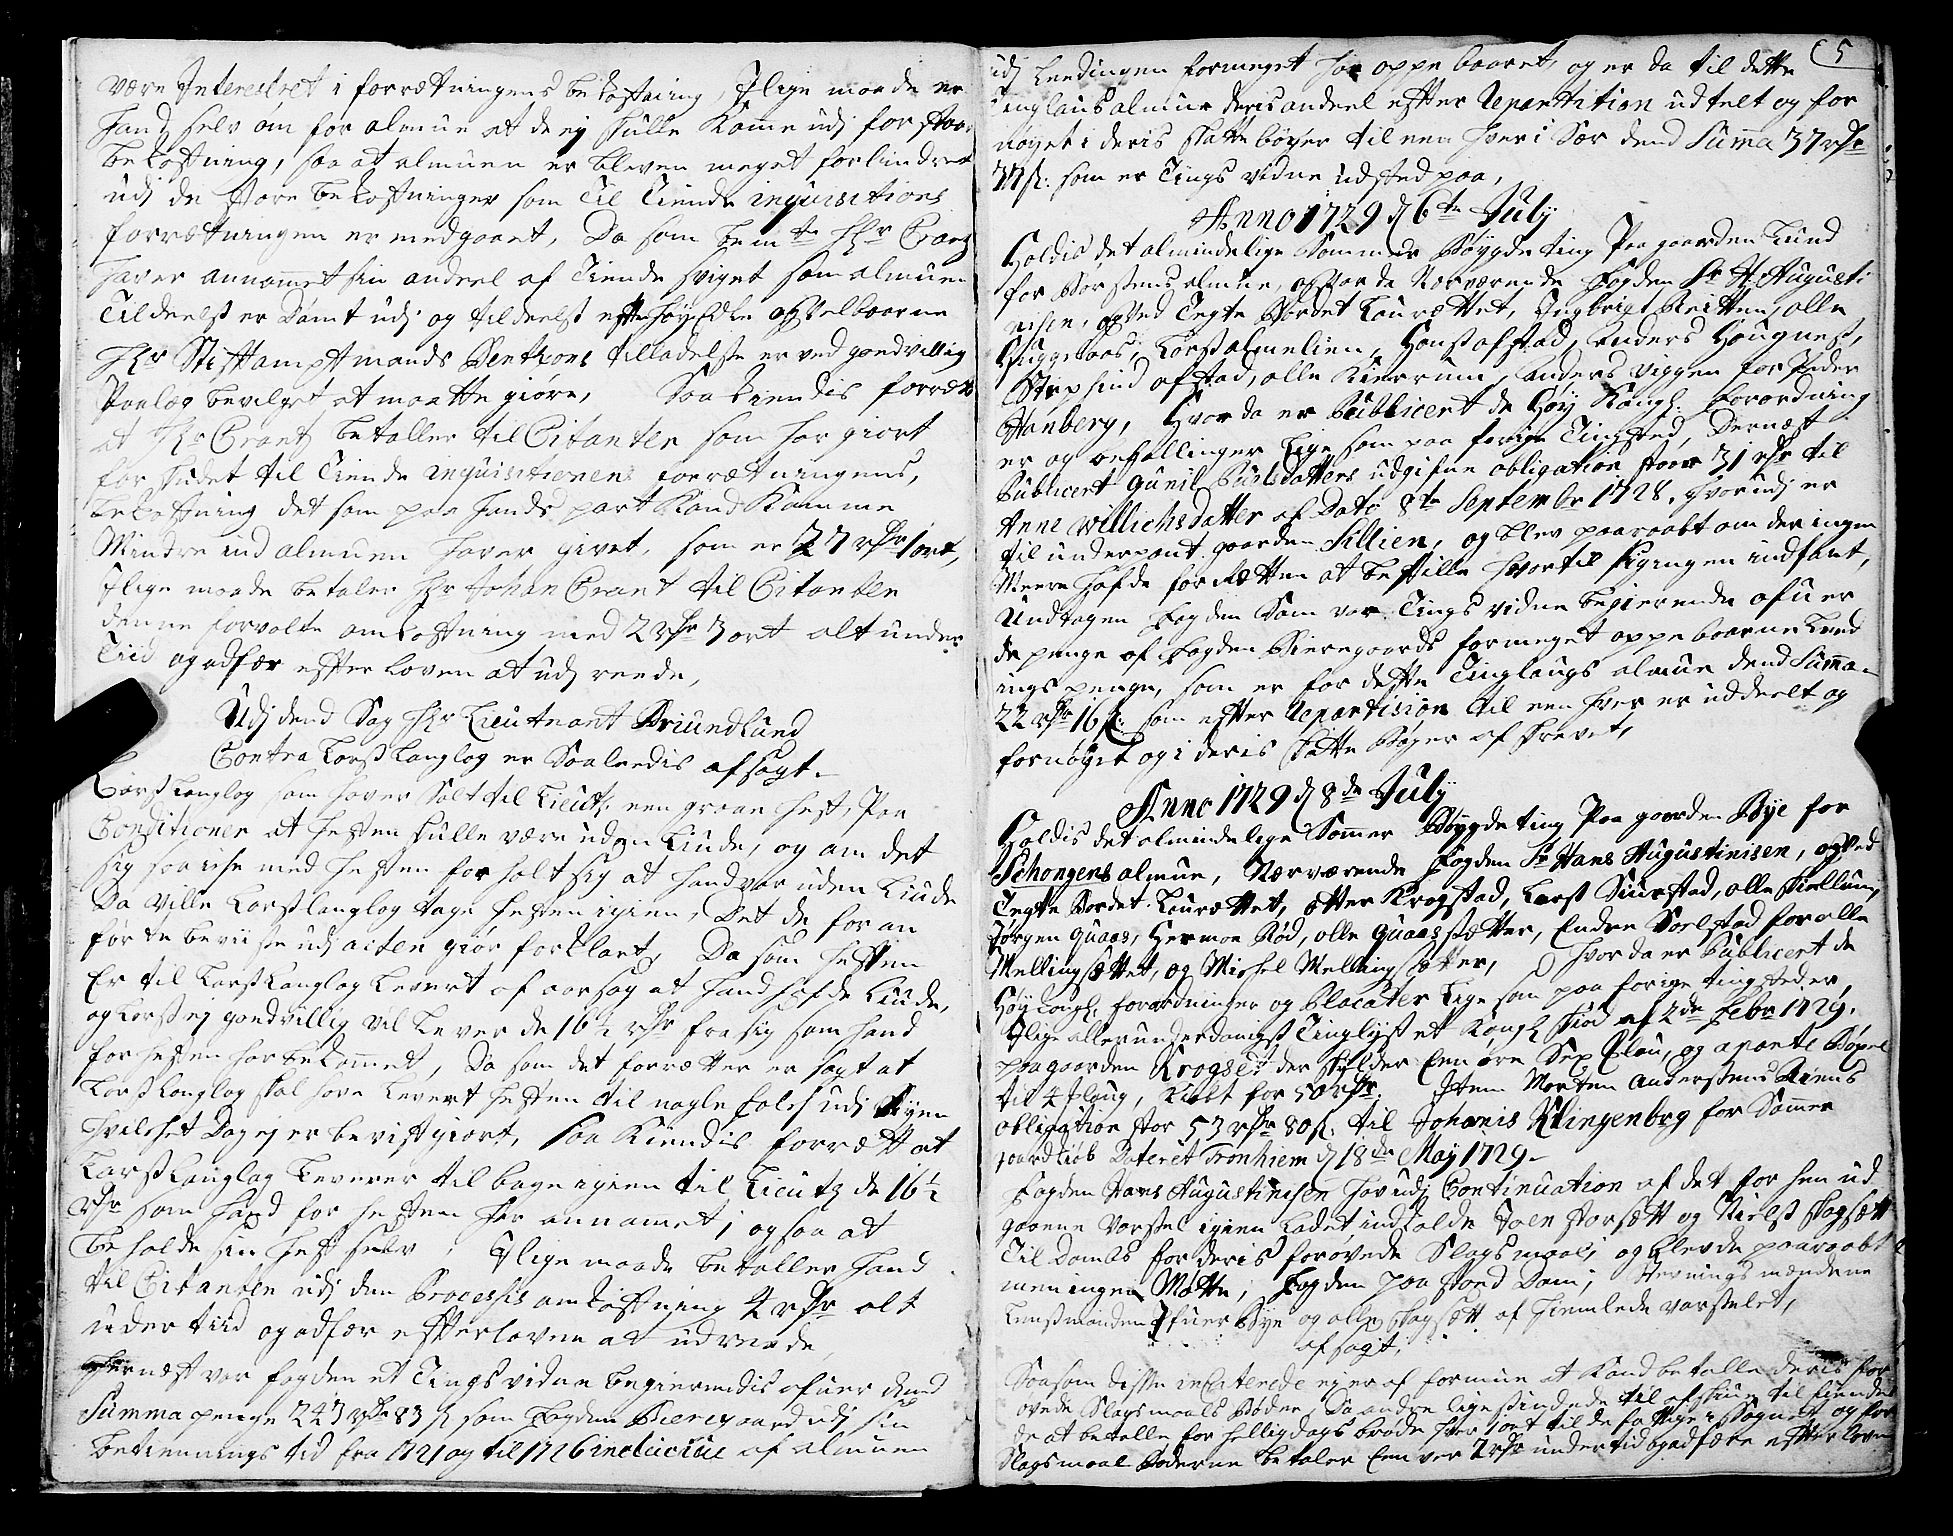 være Interesseret i forrætningens bekostning, Jlige maade er
hand selv om for almue at de ej skulle komme udj for stoer
bekostning, saa at almuen er bleven meget forlindret
udj de store bekostninger som til Tiende inqvisitions
forrætningen er medgaaet, Da som bemte Hr Crantz
haver annammet sin andeel af Tiende sviget som almuen
Tildeelst er Dømt udj og tildeelst efter Høy Edle og velbaarne
Hr Stiftamptmands Benthons tilladelse er ved goedvillig
Paalæg bevilget at maatte giøre, Saa kiendis for ræt
at Hr Crantz betaller til Citanten som har giort
for skudet til Tiende inqvisitionens forrætningens,
bekostning det som paa hands part kand komme
Mindre ind almuen haver givet, som er 27 rdr 1 ort,
Jlige maade betaler Hr Johan Crant til Citanten
denne forvolte omkostning med 2 rdr 3 ort alt under
Tiid og adfær efter loven at udj reede,
Udj dend Sag Hr Lieutnant Friundlund
Contra Larss Langlog er Saaledis afsagt.
Larss Langlog som haver Solt til Lieutn: een graae hest, Paa
Conditioner at hesten skulle være uden Liude, og om det
sig saa icke med hesten for holt sig at hand var uden Liude
Da ville Larss Langlog tage hesten igien, Det de for an
førte beviise udj acten giør forklart, Da som hesten
Er til Larss Langlog levert af aarsag at hand hafde Liude,
og Larss ej goedvillig vil levere de 16½ rdr fra sig som hand
for hesten har bekommet, Da som det forretter er sagt at
Larss Langlog skal have levert hesten til nogle folck udj Byen
hvilchet Dog ej er bevist giort, Saa kiendis for rætt at
Larss Langlog leverer til bage igien til Lieutn de 16½
rdr som hand for hesten har annamet, og saa at
beholde sin hest selv, Jlige maade betaller hand
til Citanten udj den Processis omkostning 4 rdr alt
under tiid og adfær efter loven at udreede,
Dernæst var fogden et Tings vidne begierendis ofuer dend
Summa penge 243 rdr 83 s som fogden Bieregaard udj sin
betiennings tid fra 1721 og til 1726 inclusive af almuen
5
udj Leedingen formeget har oppebaaret, og er da til dette
Tinglaugs almue deris andeel efter Repartition udtelt og for
nøyet i deris skatte bøger til een hver i Sær dend Summa 37 rdr
77 s: som er Tings vidne udsted paa,
Anno 1729 d 6te July
Holdis det almindelige Sommer Bøygde ting Paa gaarden Lund
for Børsens almue, og var da Nærværende Fogden Sr H. Augusti
nisen, og Ved Tegte Bordet Laurættet, Ingbrigt Reitten, olle
Hyggeraas, Larss almelien, Hans afstad, anders Hougnest,
Styhsind afstad, olle Kierrum, anders Viggen for Peder
Hanberg, Hvor da er Publicert de Høy Kongl: Forordning
er og befallinger Lige som paa forige Tingsted, Dernæst
Publicert Gunil Pulsdatters udgifne obligation stoer 31 rdr til
Anne Willichsdatter af Dato 8te Septembr 1728, hvorudj er
til underpant gaarden Sillien, og blev paaraabt om der ingen
Meere hafde for Rætten at bestille hvortil sig ingen indfant,
Undtagen Fogden Som var Tings vidne begierende ofuer
de penge af Fogden Bieregaards formeget oppebaarne Leed
ings penge, som er for dette Tinglaugs almue dend Summa.
22 rdr 16 s: som efter Repartision til een hver er uddeelt og
fornøyet og i deris skatte Bøger af skrevet,
Anno 1729 d 8de July
Holdis det almindelige Sommer Bøygde ting Paa gaarden Bye for
Schongens almue, Nærværende Fogden Sr Hans Augustinisen, og Ved
Tegte Bordet Laurættet, otter Krogstad, Larss Siurstad, olle Skellum,
Jørgen Quaas, Hermoe Rød, olle Quaassetter, Endre Sorlstad for olle
Mellingsettet, og Michel Mellingsetter, Hvor da er Publicert de
Høy Kongl: forordninger og Placater Lige som paa forige tingsteder,
Jlige allerunderdanigst Tinglyst et Kongl Skiøde af 2de Febr 1729.
paa gaarden Krogset der skylder Een øre Sex Clau, og aparte Bøxel
til ¼ slaug, Kiøbt for 50 rdr: Jtem Morten Anderssens Riens
obligation stor 53 rdr 80 s: til Johanis Klingenberg for Samme
gaard kiøb Dateret Tronhiem d 18de May 1729.
Fogden Hans Augustinisen hav udj Continuation af det for hen ud
gaaene varsel igien Ladet indkalde Joen storsett og Nielss Skagsett
Til Doms for deris forøvede Slags maal, og blev de paaraabt
men ingen Møtte, Fogden paastoed Dom, Stevnings mændene
Lensmanden Jfuer Bye og olle Skagsett af hiemlede varselet,
afsagt,
Saasom disse incaterede ej er af formue at kand betalle deris for
øvede Slagsmaals Bøder, Da andre ligesindede til afskye til kiendes
de at betalle for Helligdags brøde hver 1 ort til de fattige i Sognet og for
Slagsmaal Bøderne betaler Een ver 2 rdr under tid og adfære efter loven